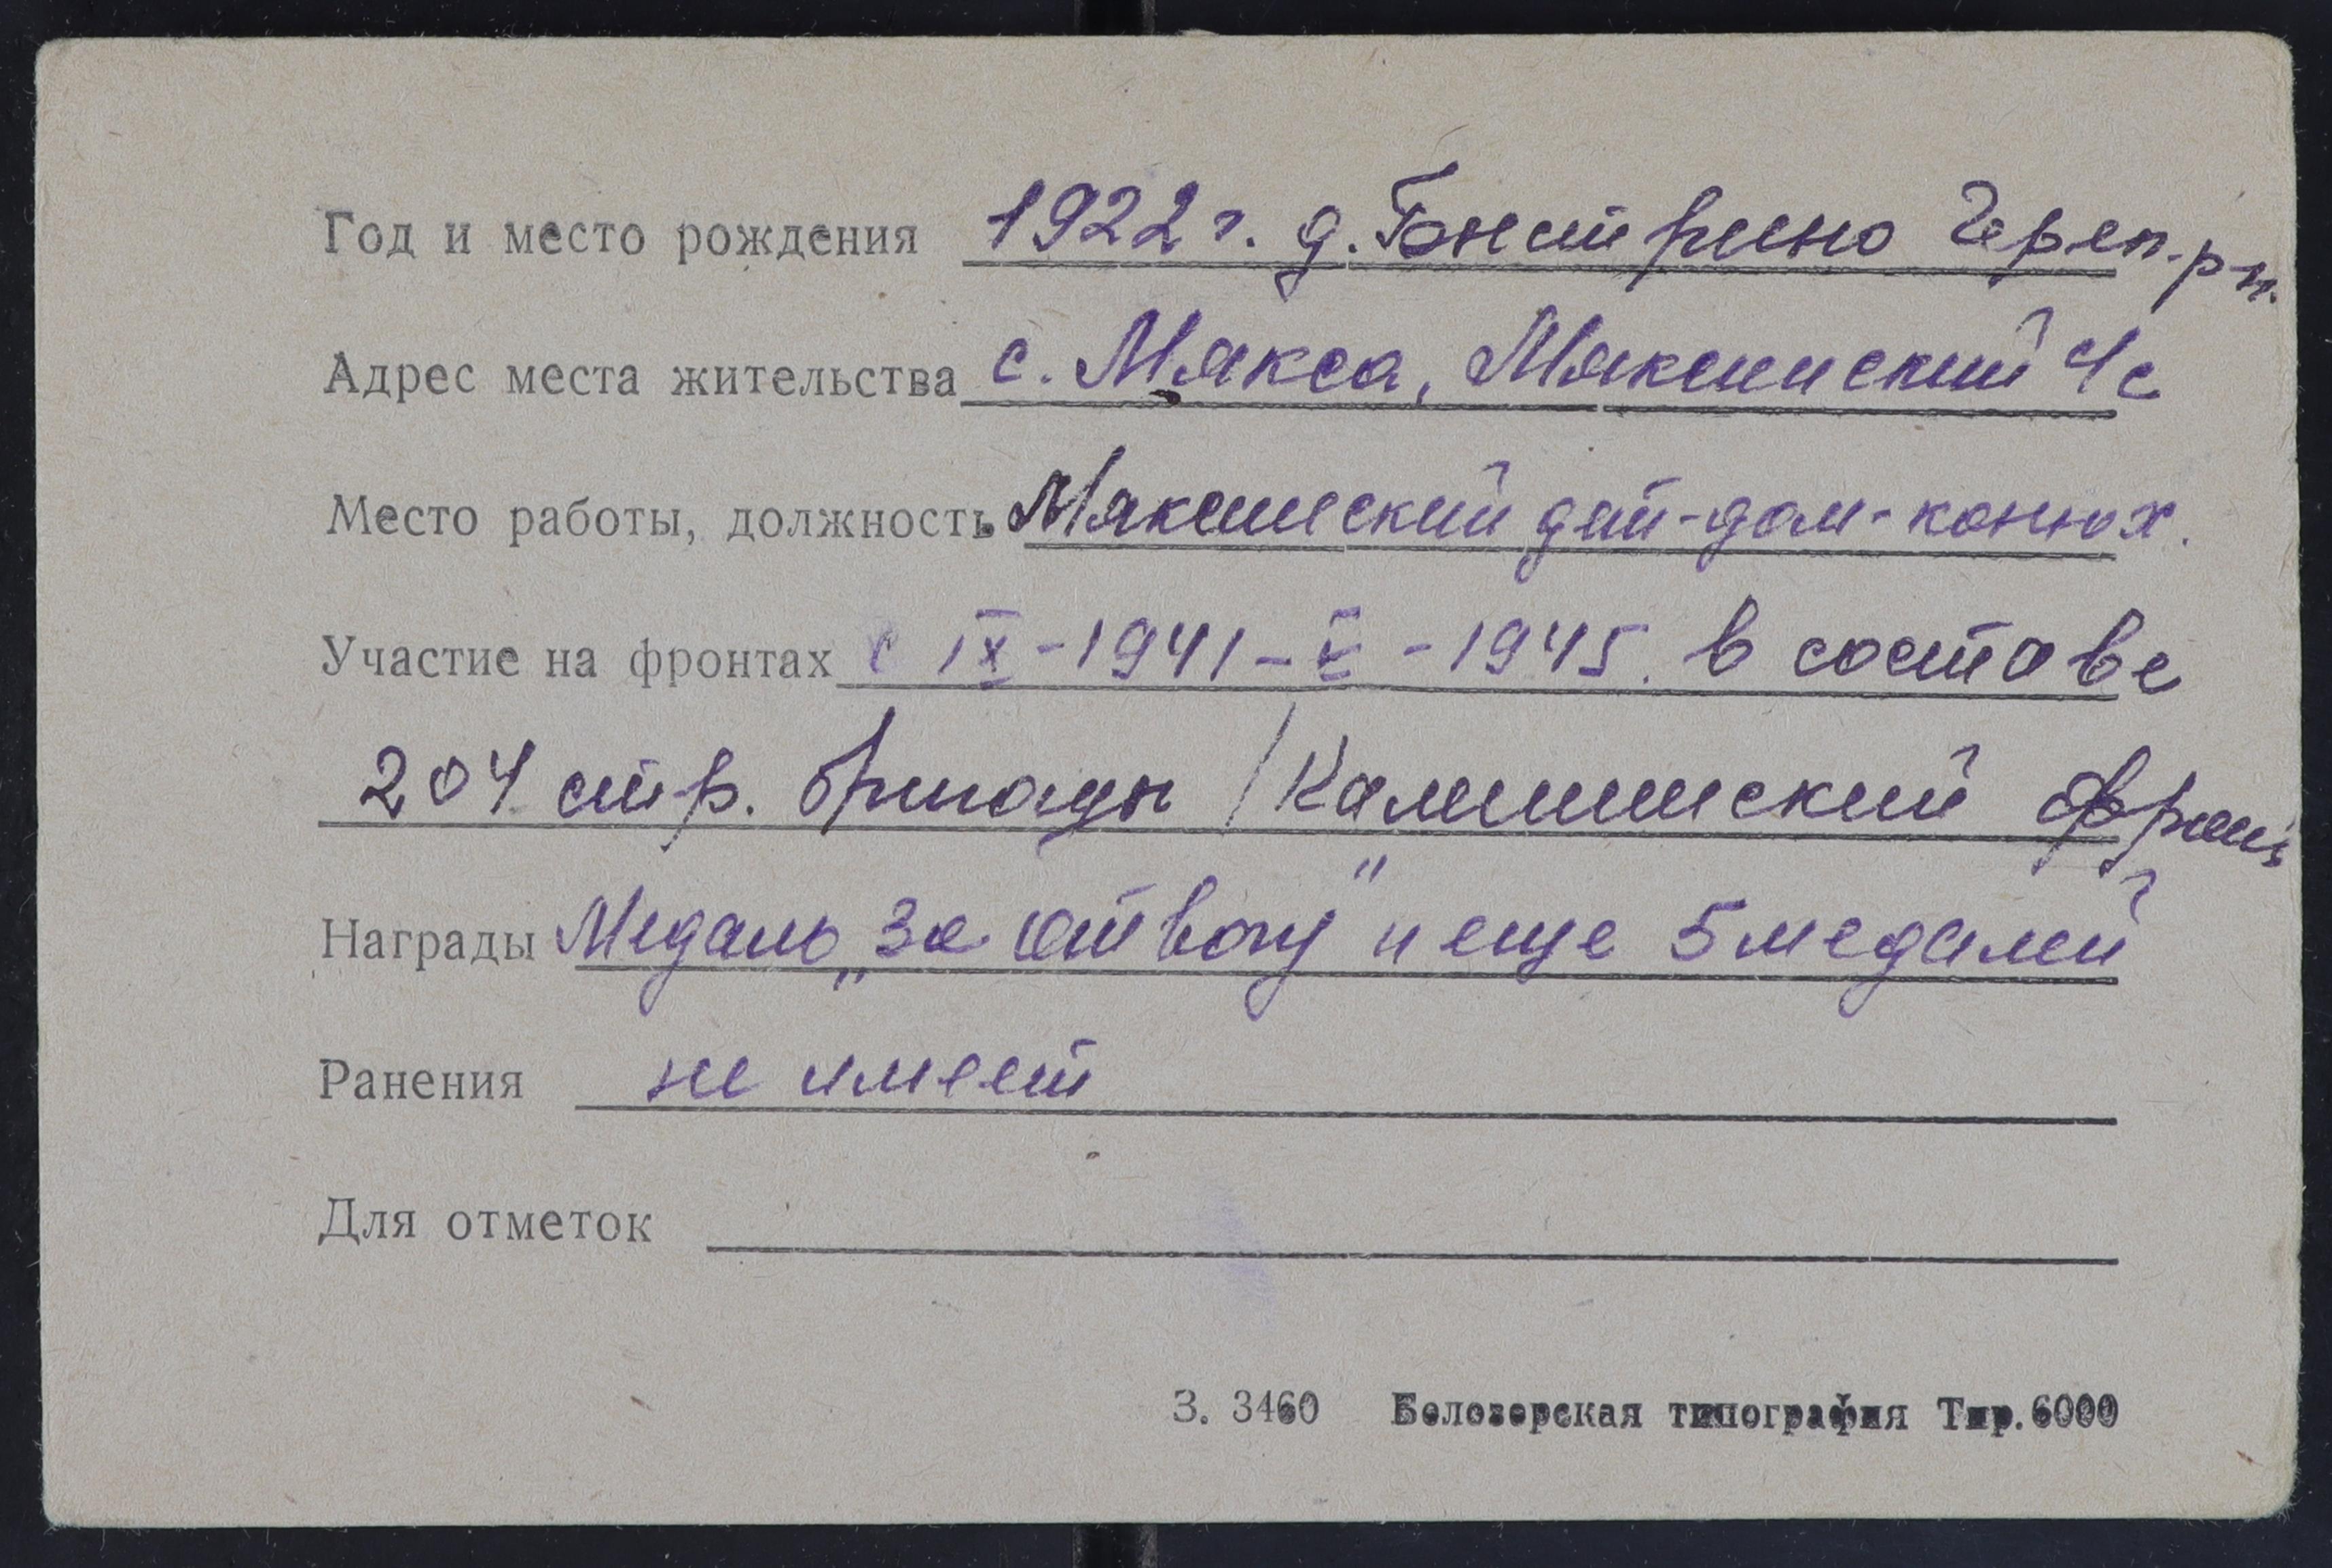 Год и место рождения 1922 г. д. Череп. р-н.
Адрес места жительства с. Мякса, Мяксинский с/с
Место работы, должность Мяксинский дет-дом-конюх.
Участие на фронтах с IX-1941-V-1945. в составе
204 стр. бригады /Калининский фронт
Награды Медаль „За отвагу" и еще 5 медалей
Ранения не имеет
Для отметок
З. 3460 Белозерская типография Тир. 6000